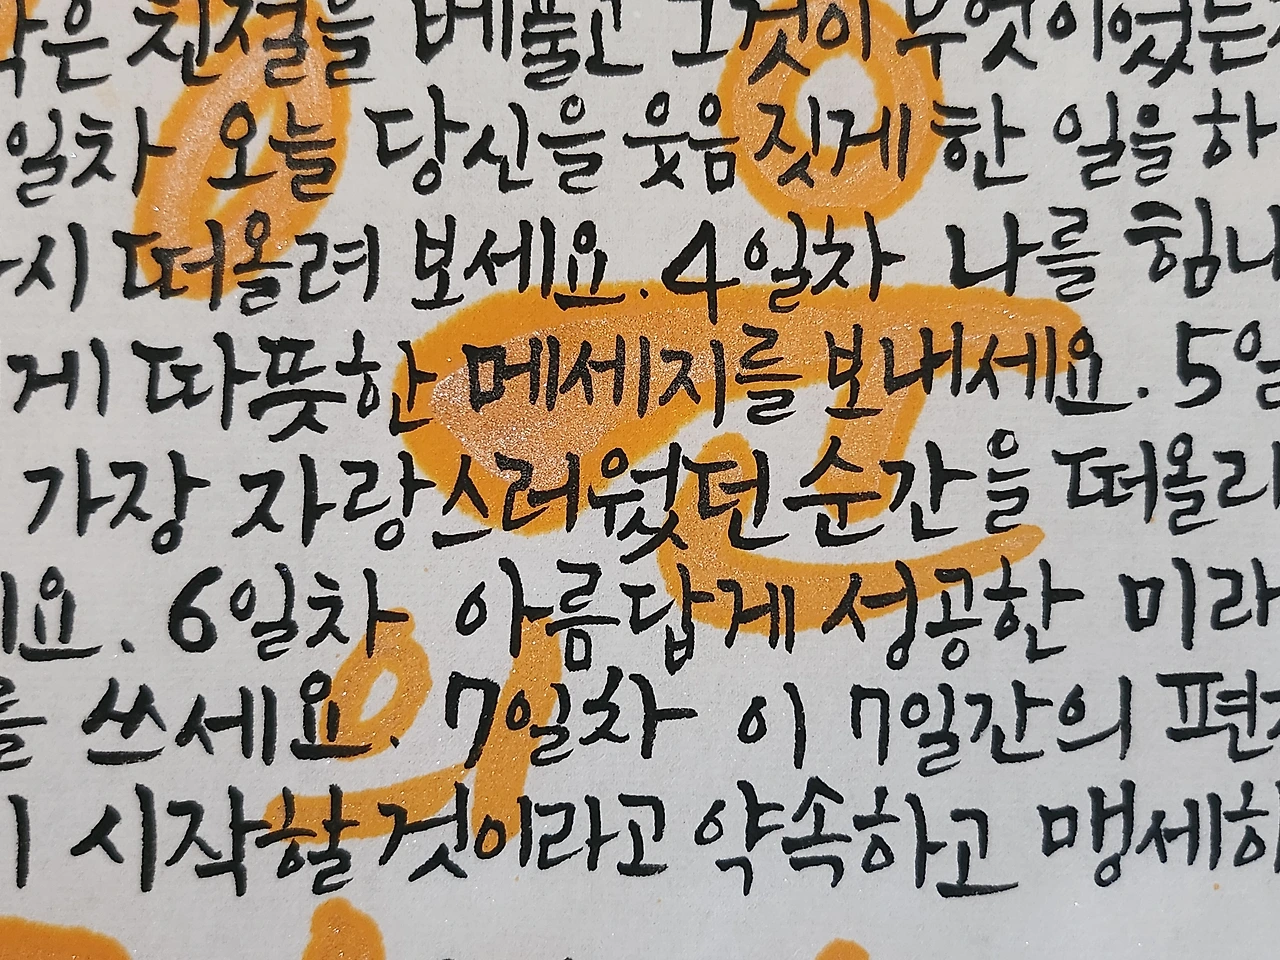 작은 친절을 베풀고 그것이 무엇이었는
일차 오늘 당신을 웃음 짓게 한 일을 하
시 떠올려 보세요. 4일차 나를 힘나
게 따뜻한 메세지를 보내세요. 5일
가장 자랑스러웠던 순간을 떠올리
요. 6일차 아름답게 성공한 미라
를 쓰세요. 7일차 이 7일간의 편
시작할 것이라고 약속하고 맹세하